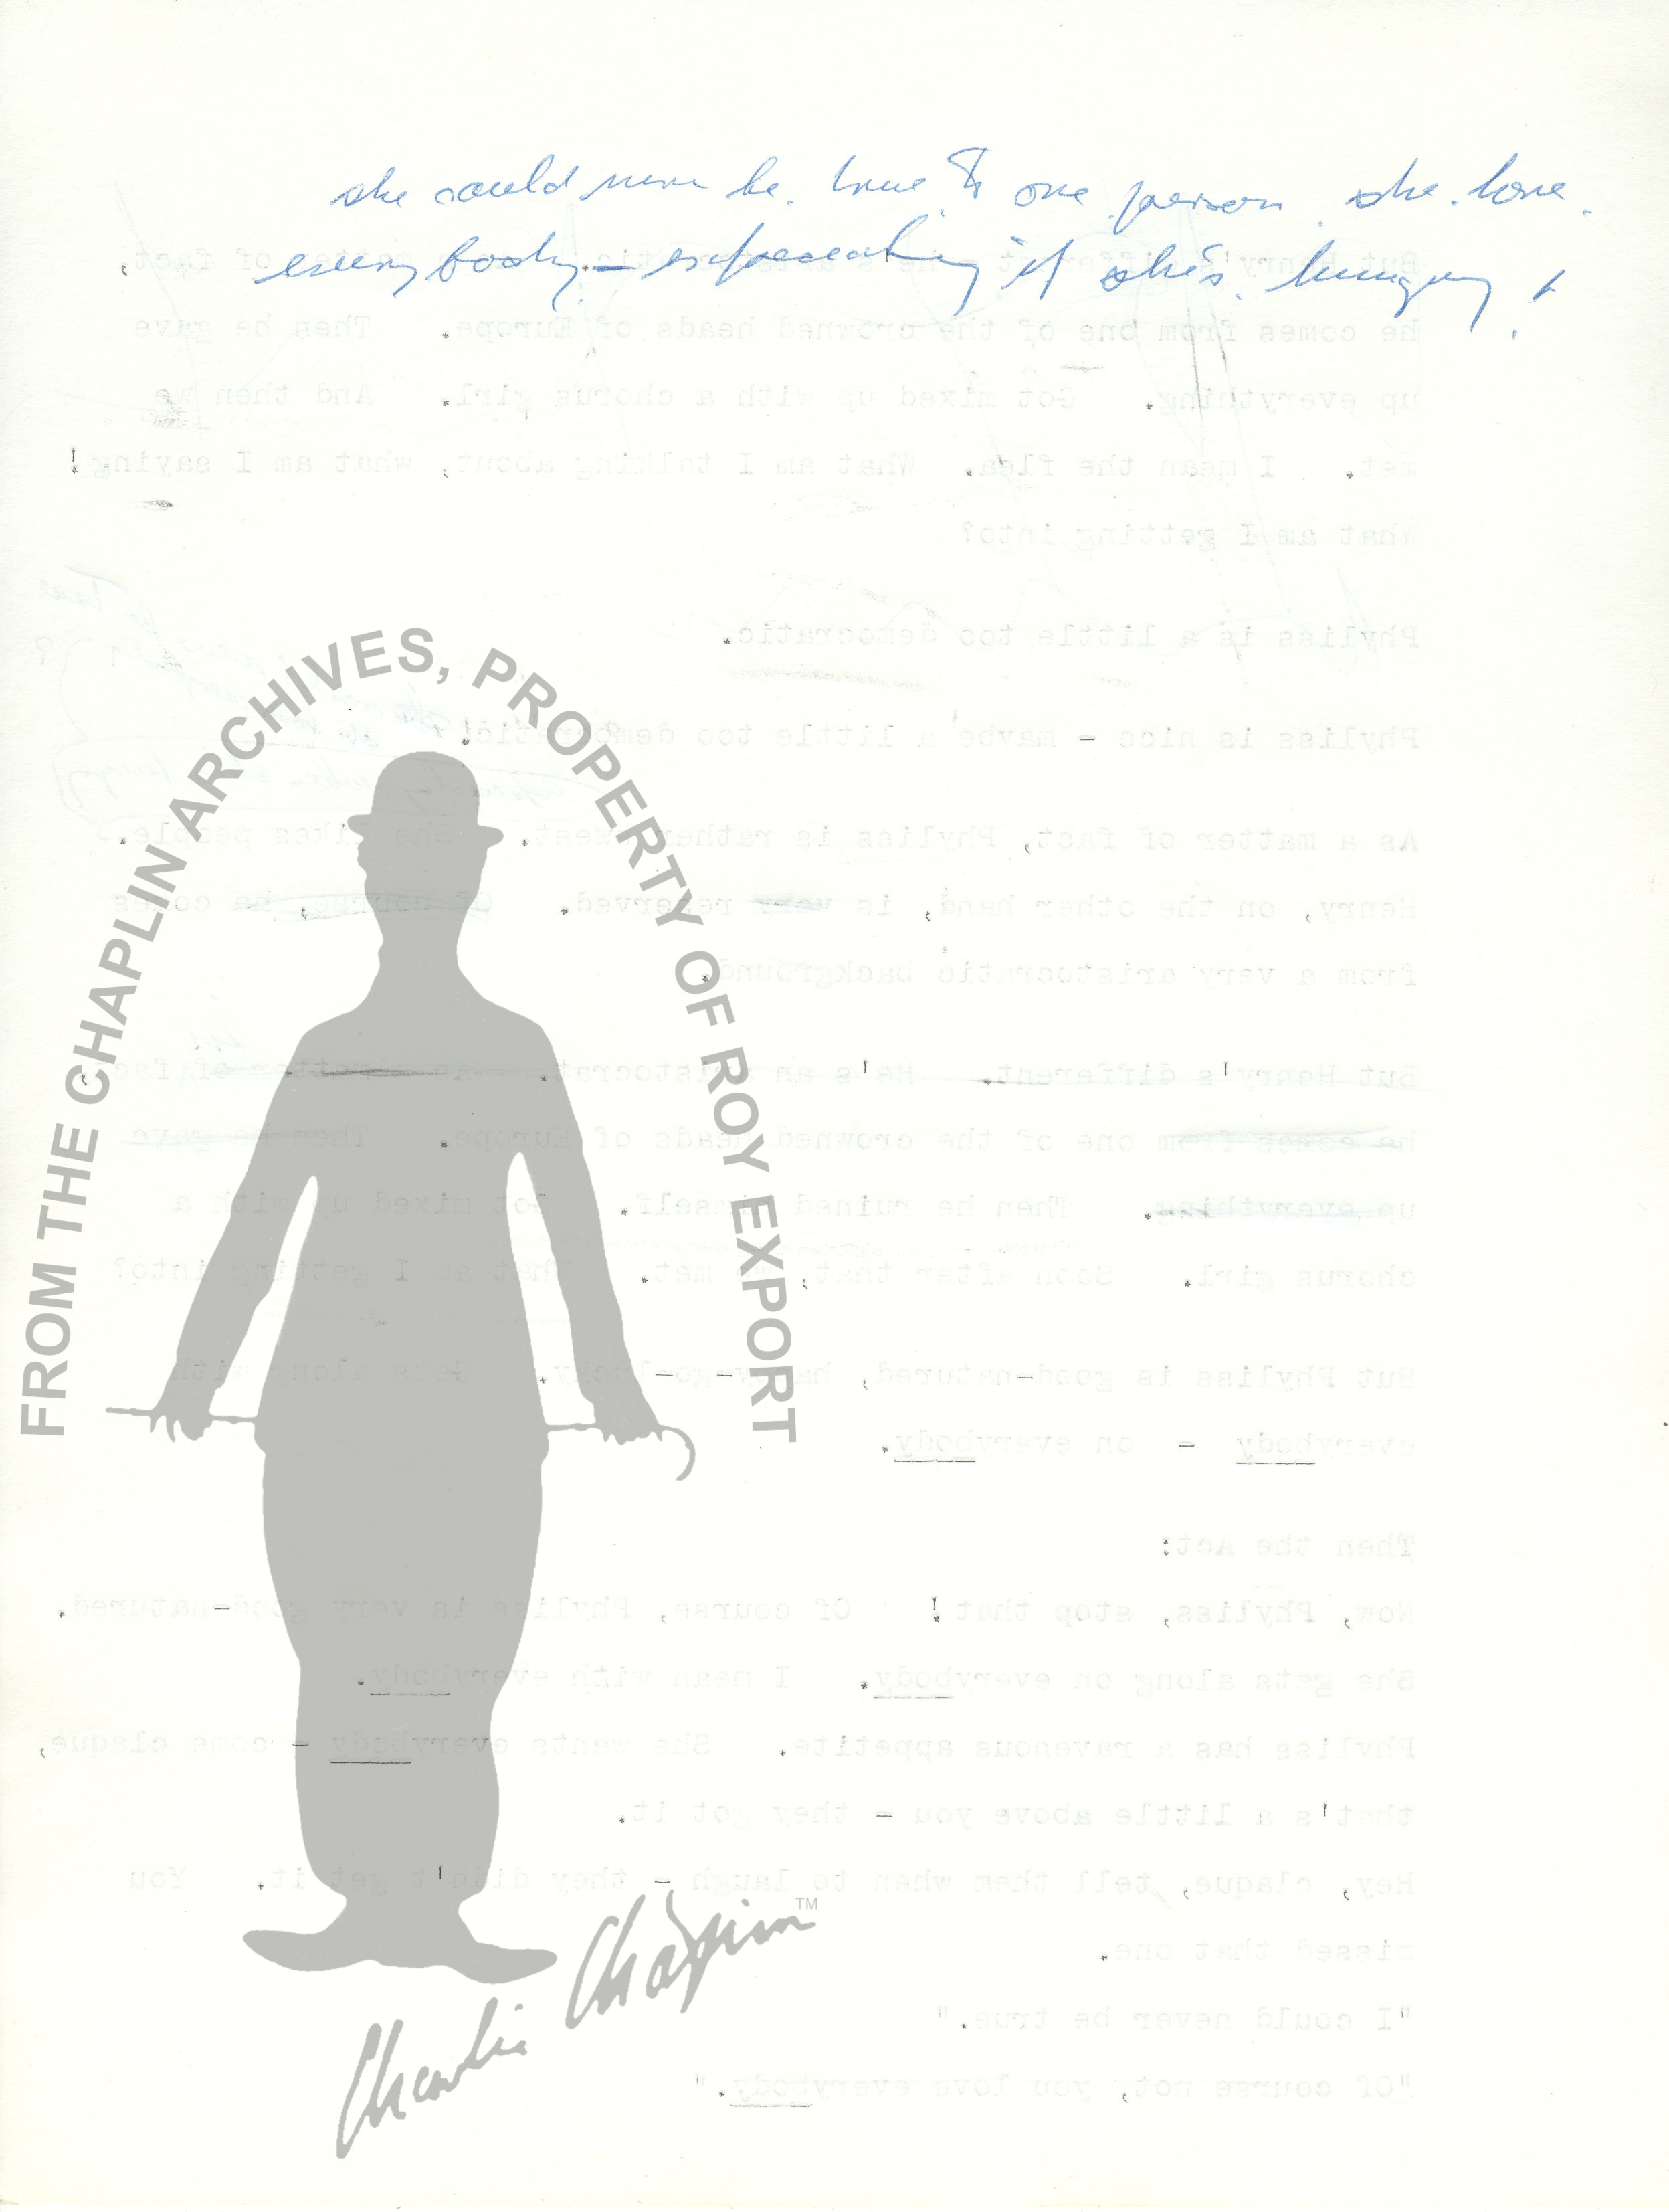 she could never be true to one person. she love
every body – especially if she's hungry!
But Henry's different
of fact,
he comes from one of the crowned heads of Europe. Then he gave
up everything. Got mixed up with a chorus girl. And then we
met. I mean the flea. What am I talking about, what am I saying!
What am I getting into?
Phyllis is a little too democratic.
Phyllis is nice - maybe a little too democratic!
As a matter of fact, Phyllis is rather sweet. She likes people.
Henry, on the other hand, is very reserved. Of course, he comes
from a very aristocratic background.
But Henry's different. He's an aristocrat. As a matter of fact,
he comes from one of the crowned heads of Europe. Then he gave
up everything. Then he ruined himself. Got mixed up with a
chorus girl. Soon after that, we met. What am I getting into?
But Phyllis is good-natured, happy-go-lucky. Gets along with
everybody - on everybody.
Then the Act:
Now, Phyllis, stop that! Of course, Phyllis is very good-natured.
She gets along on everybody. I mean with everybody.
Phyllis has a ravenous appetite. She wants everybody - come claque,
that's a little above you - they got it.
Hey, claque, tell them when to laugh - they didn't get it. You
missed that one.
"I could never be true."
"Of course not, you love everybody."
FROM THE CHAPLIN ARCHIVES, PROPERTY OF ROY EXPORT
Charlie Chaplin™